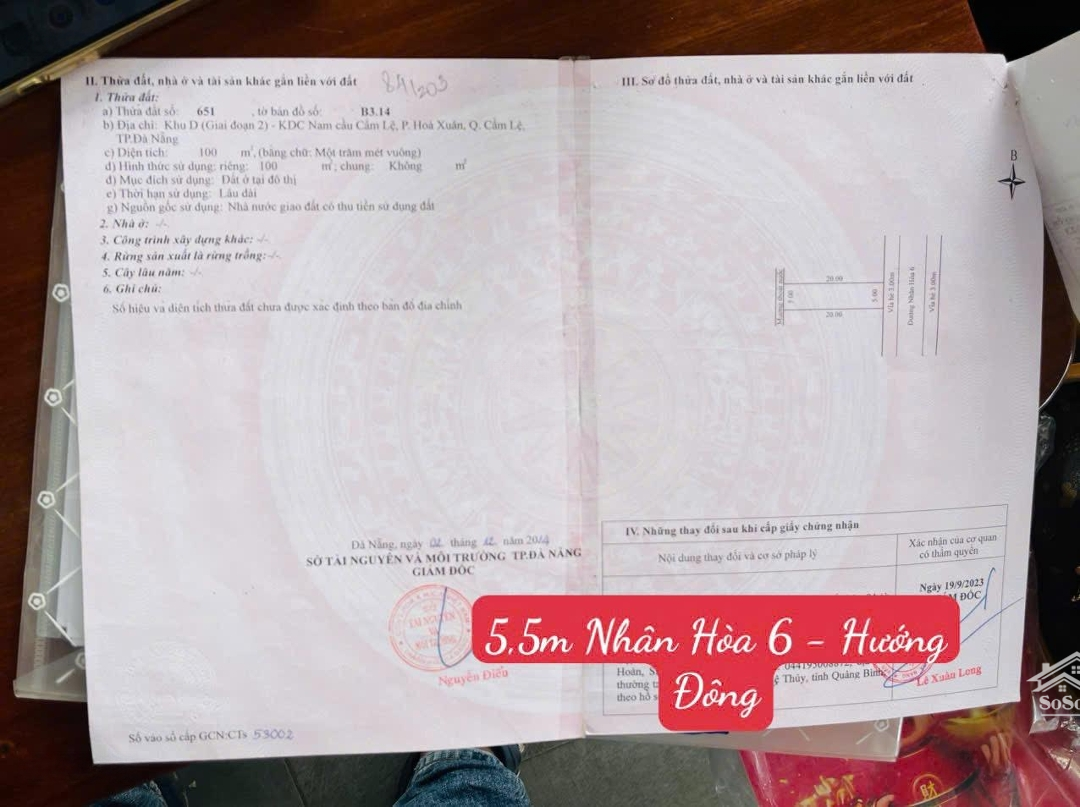 II. Thửa đất, nhà ở và tài sản khác gắn liền với đất
84/203
1. Thửa đất:
a) Thửa đất số: 651 , tờ bản đồ số: B3.14
b) Địa chỉ: Khu D (Giai đoạn 2) - KDC Nam cầu Cẩm Lệ, P. Hoà Xuân, Q. Cẩm Lệ,
TP.Đà Nẵng
c) Diện tích: 100 m², (bằng chữ: Một trăm mét vuông)
d) Hình thức sử dụng: riêng: 100 m²; chung: Không m²
đ) Mục đích sử dụng: Đất ở tại đô thị
e) Thời hạn sử dụng: Lâu dài
g) Nguồn gốc sử dụng: Nhà nước giao đất có thu tiền sử dụng đất
2. Nhà ở: -/-
3. Công trình xây dựng khác: -/-
4. Rừng sản xuất là rừng trồng: -/-
5. Cây lâu năm: -/-
6. Ghi chú:
Số hiệu và diện tích thửa đất chưa được xác định theo bản đồ địa chính
Đà Nẵng, ngày 02 tháng 12 năm 2014
SỞ TÀI NGUYÊN VÀ MÔI TRƯỜNG TP.ĐÀ NẴNG
GIÁM ĐỐC
Nguyễn Điểu
Số vào sổ cấp GCN:CTs 53002
III. Sơ đồ thửa đất, nhà ở và tài sản khác gắn liền với đất
B
20.00
5.00
5.00
20.00
Mương thoát nước
Vỉa hè 3.00m
Đường Nhân Hòa 6
Vỉa hè 3.00m
IV. Những thay đổi sau khi cấp giấy chứng nhận
Nội dung thay đổi và cơ sở pháp lý
Xác nhận của cơ quan
có thẩm quyền
Ngày 19/9/2023
ĐỐC
Hoàn, S
thường t
ệ Thủy, tỉnh Quảng Bình
theo hồ s
Lê Xuân Long
5.5m Nhân Hòa 6 - Hướng
Đông
SoSo